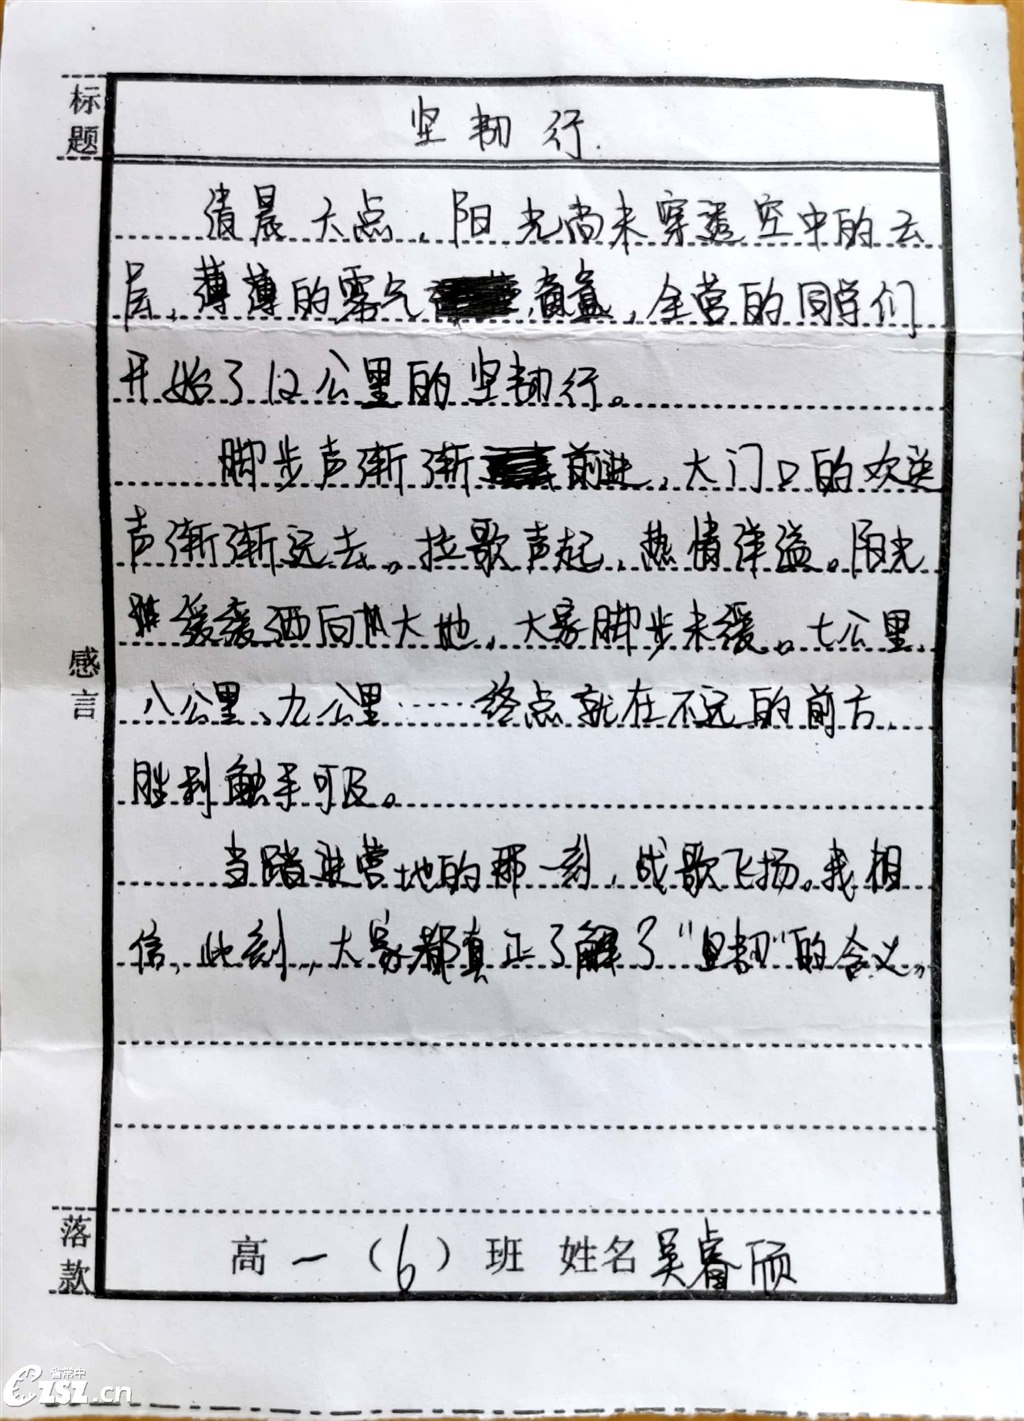 标题
坚韧行.
清晨六点，阳光尚未穿透空中的云
层，薄薄的雾气，全营的同学们
开始了12公里的坚韧行。
脚步声渐渐前进，大门口的欢送
声渐渐远去。拉歌声起，热情洋溢。阳光
缓缓洒向大地，大家脚步未缓。七公里、
八公里、九公里……终点就在不远的前方，
胜利触手可及。
当踏进营地的那一刻，战歌飞扬。我相
信，此刻，大家都真正了解了“坚韧”的含义。
感言
落款
高一（6）班 姓名吴睿颀
省常中
CZSZ.cn